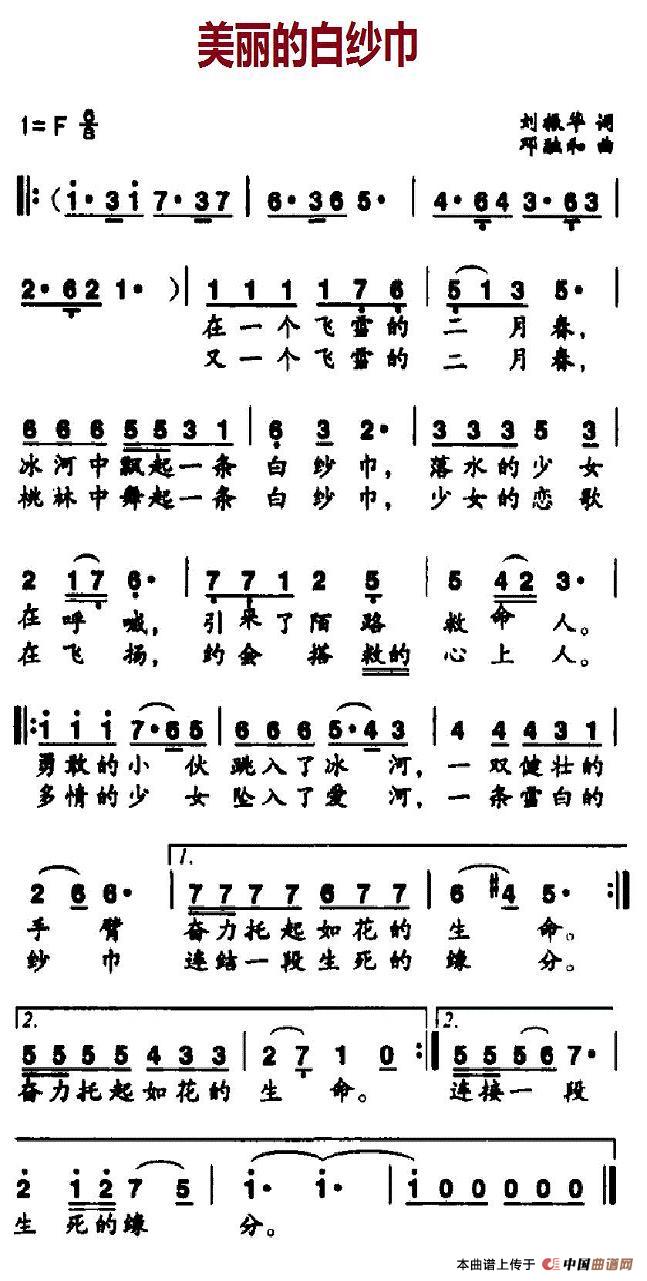 美丽的白纱巾
1=F 6/8
刘振华 词
邓融和 曲
(i·3i 7·37 | 6·36 5· | 4·64 3·63 |
2·62 1· ) | 1 1 1 1 7 6 | 5 1 3 5·
在一个飞雪的 二月春,
又一个飞雪的 二月春,
6 6 6 5 5 3 1 | 6 3 2· | 3 3 3 5 3
冰河中飘起一条 白纱巾, 落水的少女
桃林中舞起一条 白纱巾, 少女的恋歌
2 1 7 6· | 7 7 1 2 5 | 5 4 2 3· |
在呼喊, 引来了陌路 救命人。
在飞扬, 约会搭救的 心上人。
i i i 7·6 5 | 6 6 6 5·4 3 | 4 4 4 3 1 |
勇敢的小伙 跳入了冰河, 一双健壮的
多情的少女 坠入了爱河, 一条雪白的
1.
2 6 6· | 7 7 7 7 6 7 7 | 6 #4 5· :|
手臂 奋力托起如花的 生命。
纱巾 连结一段生死的 缘分。
2. 2.
5 5 5 5 4 3 3 | 2 7 1 0 :| 5 5 5 6 7· |
奋力托起如花的 生命。 连接一段
2 i 2 7 5 | i· i· | i 0 0 0 0 0 ‖
生死的缘 分。
本曲谱上传于 中国曲谱网